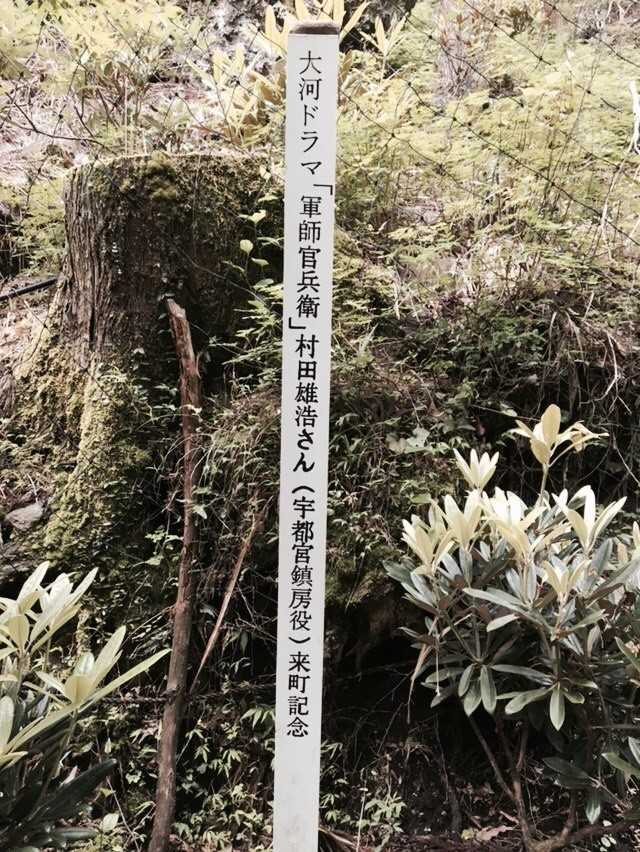 大河ドラマ「軍師官兵衛」村田雄浩さん(宇都宮鎮房役)来町記念